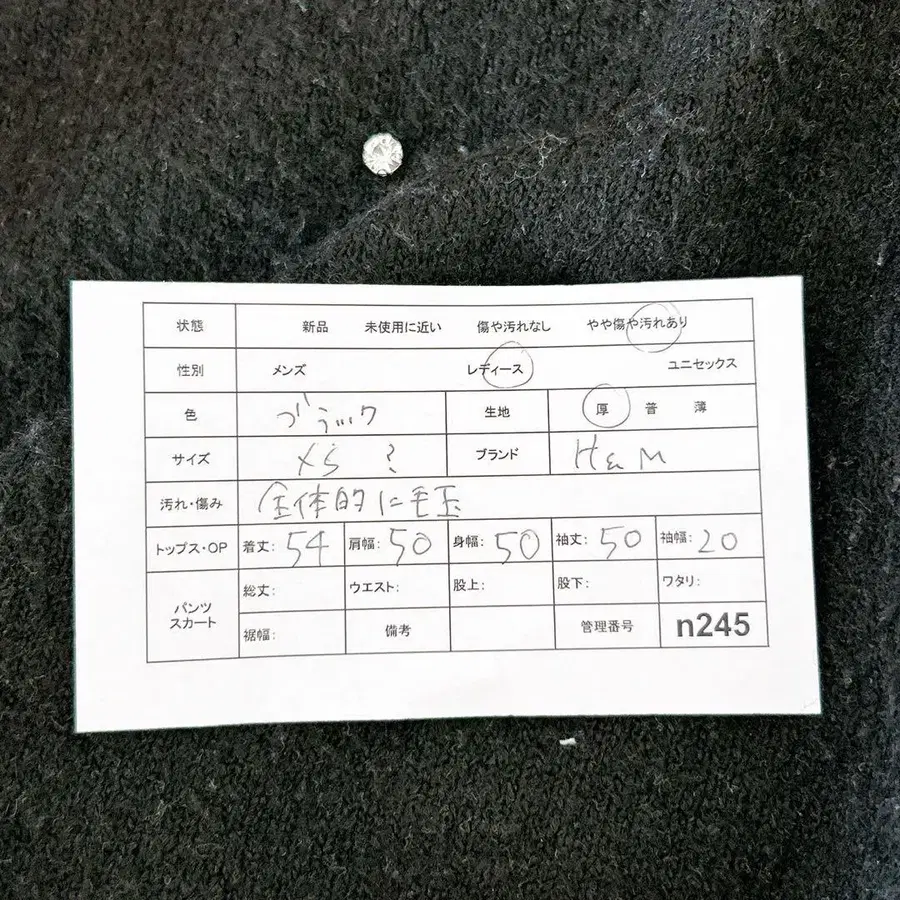 状態 新品 未使用に近い 傷や汚れなし やや傷や汚れあり
性別 メンズ レディース ユニセックス
色 ブラック 生地 厚 普 薄
サイズ XS ? ブランド H&M
汚れ・傷み 全体的に毛玉
トップス・OP 着丈: 54 肩幅: 50 身幅: 50 袖丈: 50 袖幅: 20
パンツ スカート 総丈: ウエスト: 股上: 股下: ワタリ:
裾幅: 備考 管理番号 n245